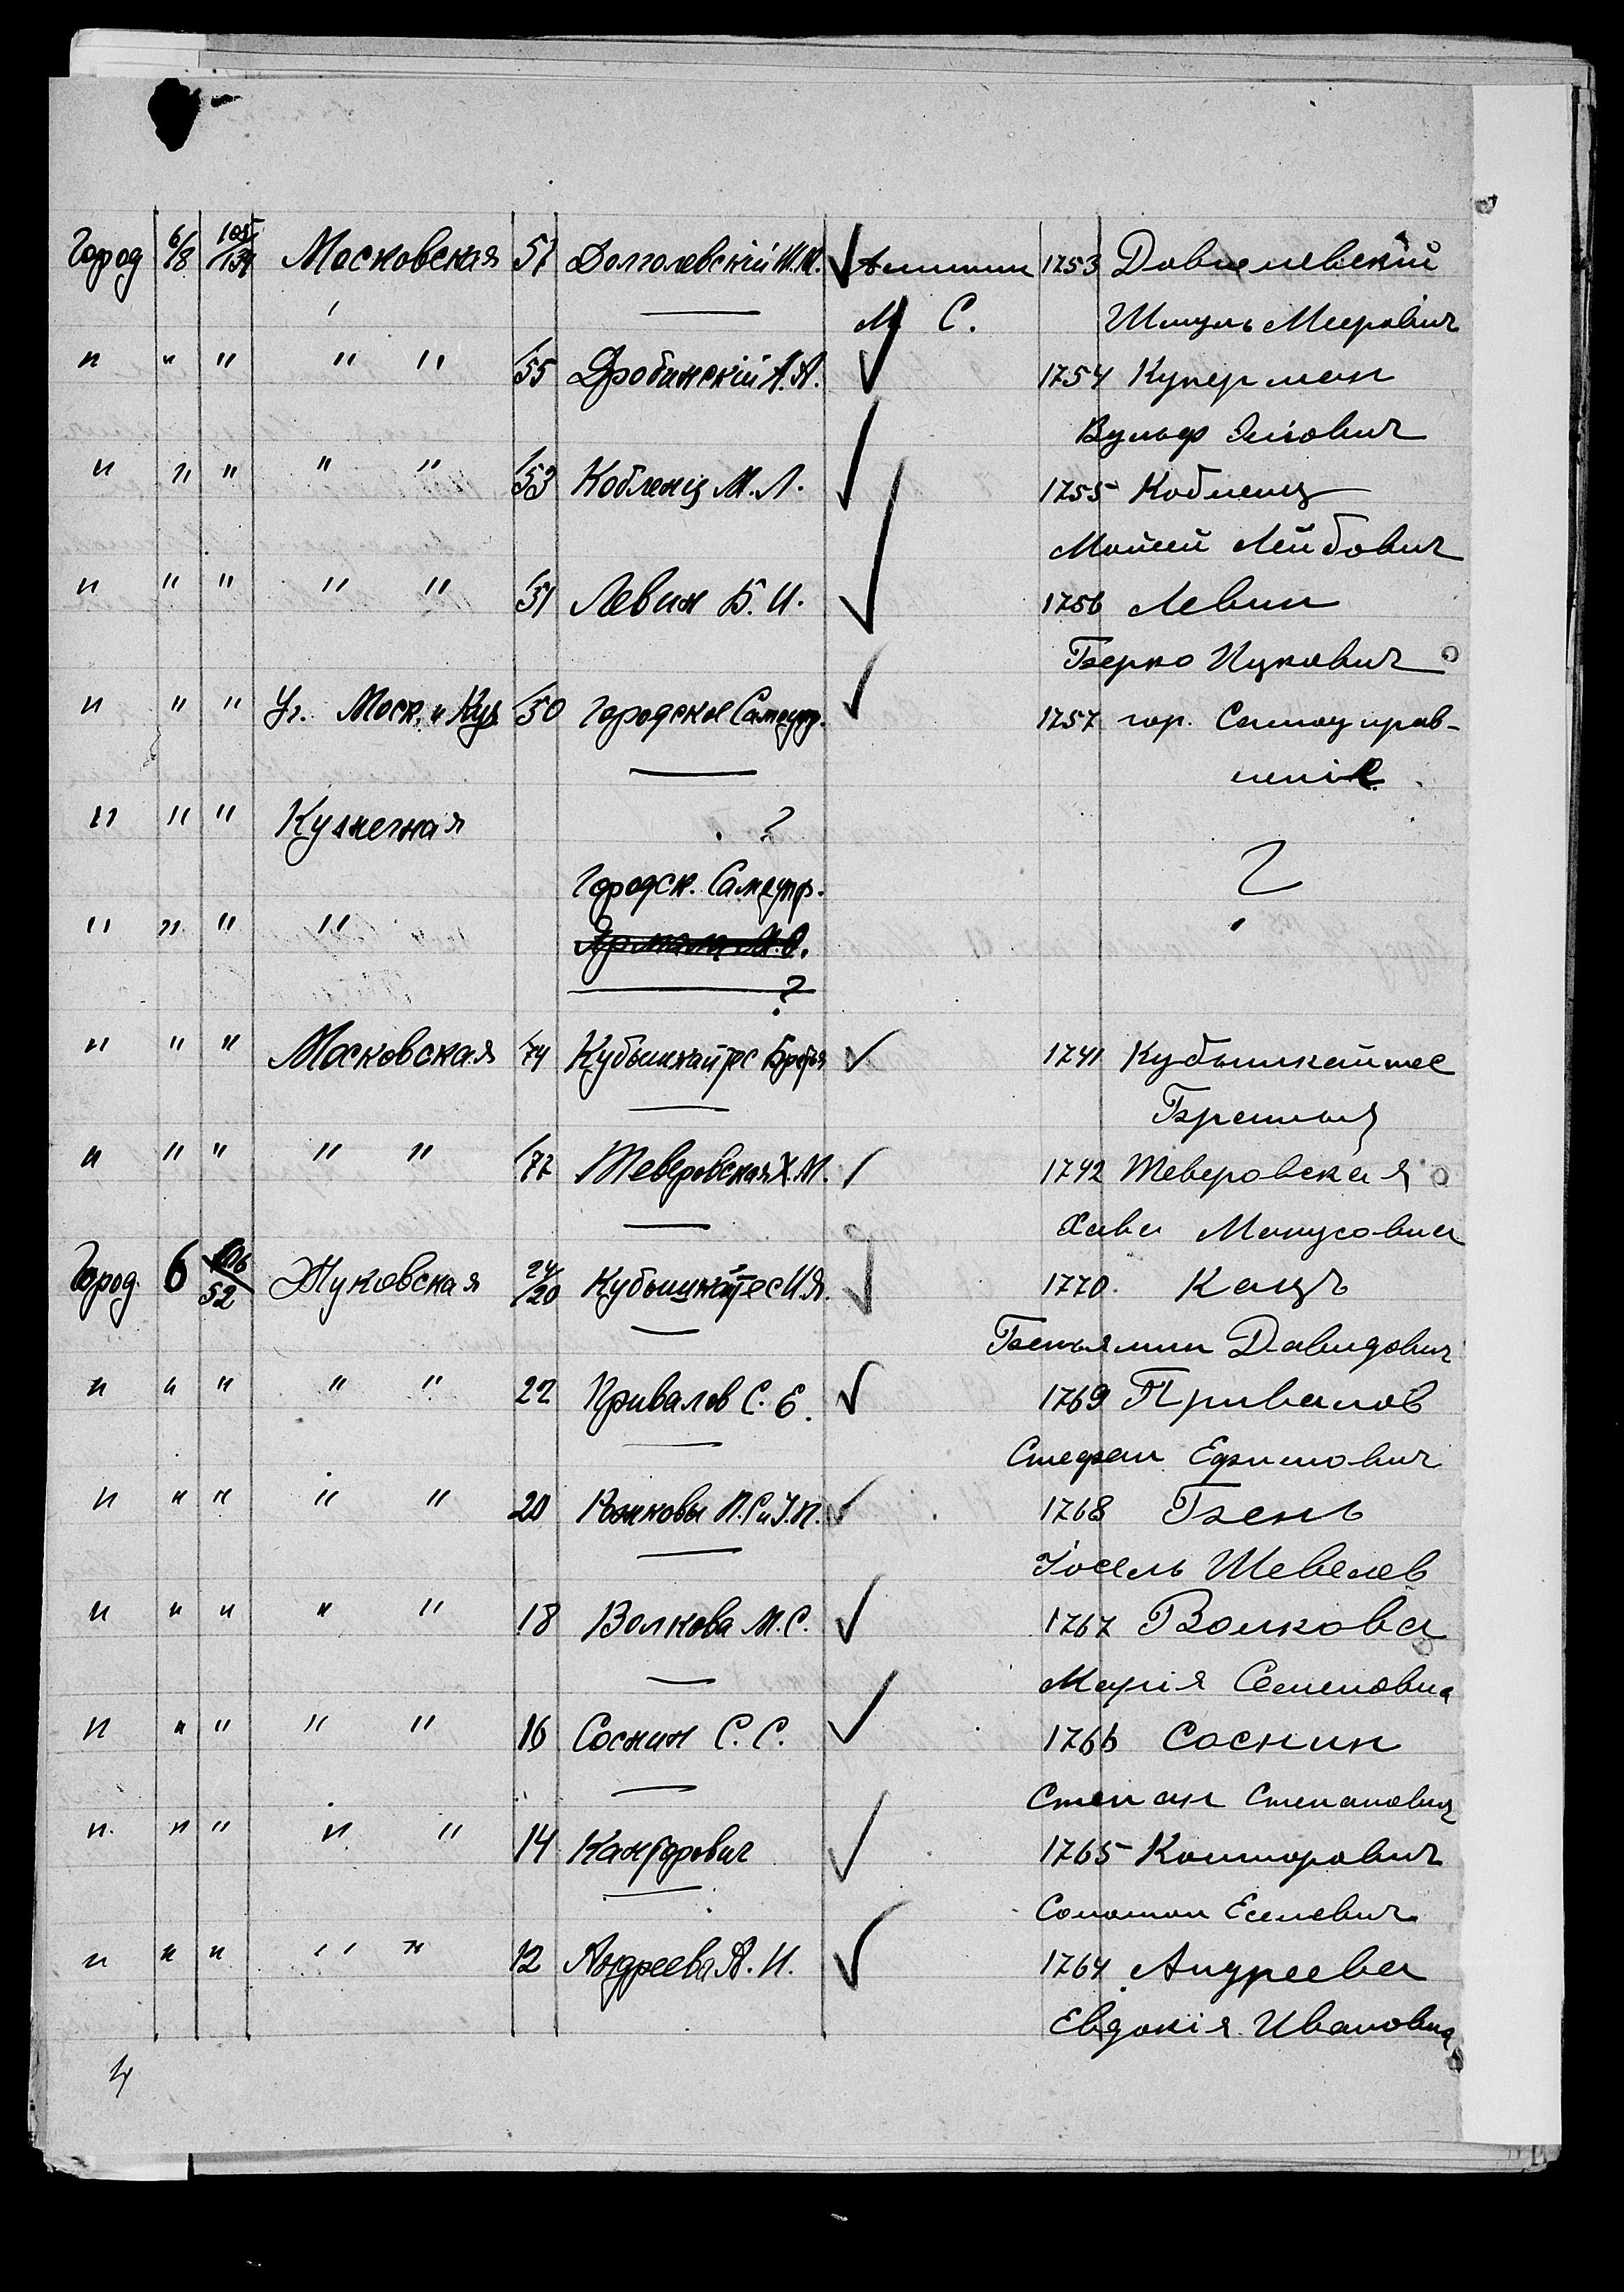 Город 6/8 105/134 Московская 57 Долголевскій Ш.М. 1753
М С. Шмуль Мееровичъ
" " " " " 55 Дробинскій А.А. 1754 Куперман
Вульф
" " " " " 53 Кобленц М.Л. 1755 Кобленц
Мойсей Лейбович
" " " " " 51 Левин Б.И. 1756 Левин
Берко Ицкович
" " " Уг. Моск. и Куз 50 Городское Самоупр. 1757 гор. Самоуправ-
леніе
" " " Кузнечная ? ?
Городск. Самоупр.
" " " "
?
" " " Московская 74 Кубышкайтес Братья 1741 Кубышкайтес
Братья
" " " " " 77 Теверовская Х.М. 1742 Теверовская
Хава Манусовна
Город 6 106/52 Жуковская 24/20 Кубышкайтес И.Я. 1770. Кацъ
Беньямин Давидович
" " " " " 22 Привалов С.Е. 1769 Привалов
Стефан Ефимович
" " " " " 20 П.С. и У.П. 1768 Бень
Іосель Шевелев
" " " " " 18 Волкова М.С. 1767 Волкова
Марія Семеновна
" " " " " 16 Соснин С.С. 1766 Соснин
Степан Степанович
" " " " " 14 Канторович 1765 Канторович
Соломон Еселевич
" " " " " 12 Андреева А.И. 1764 Андреева
Евдокія Ивановна
4